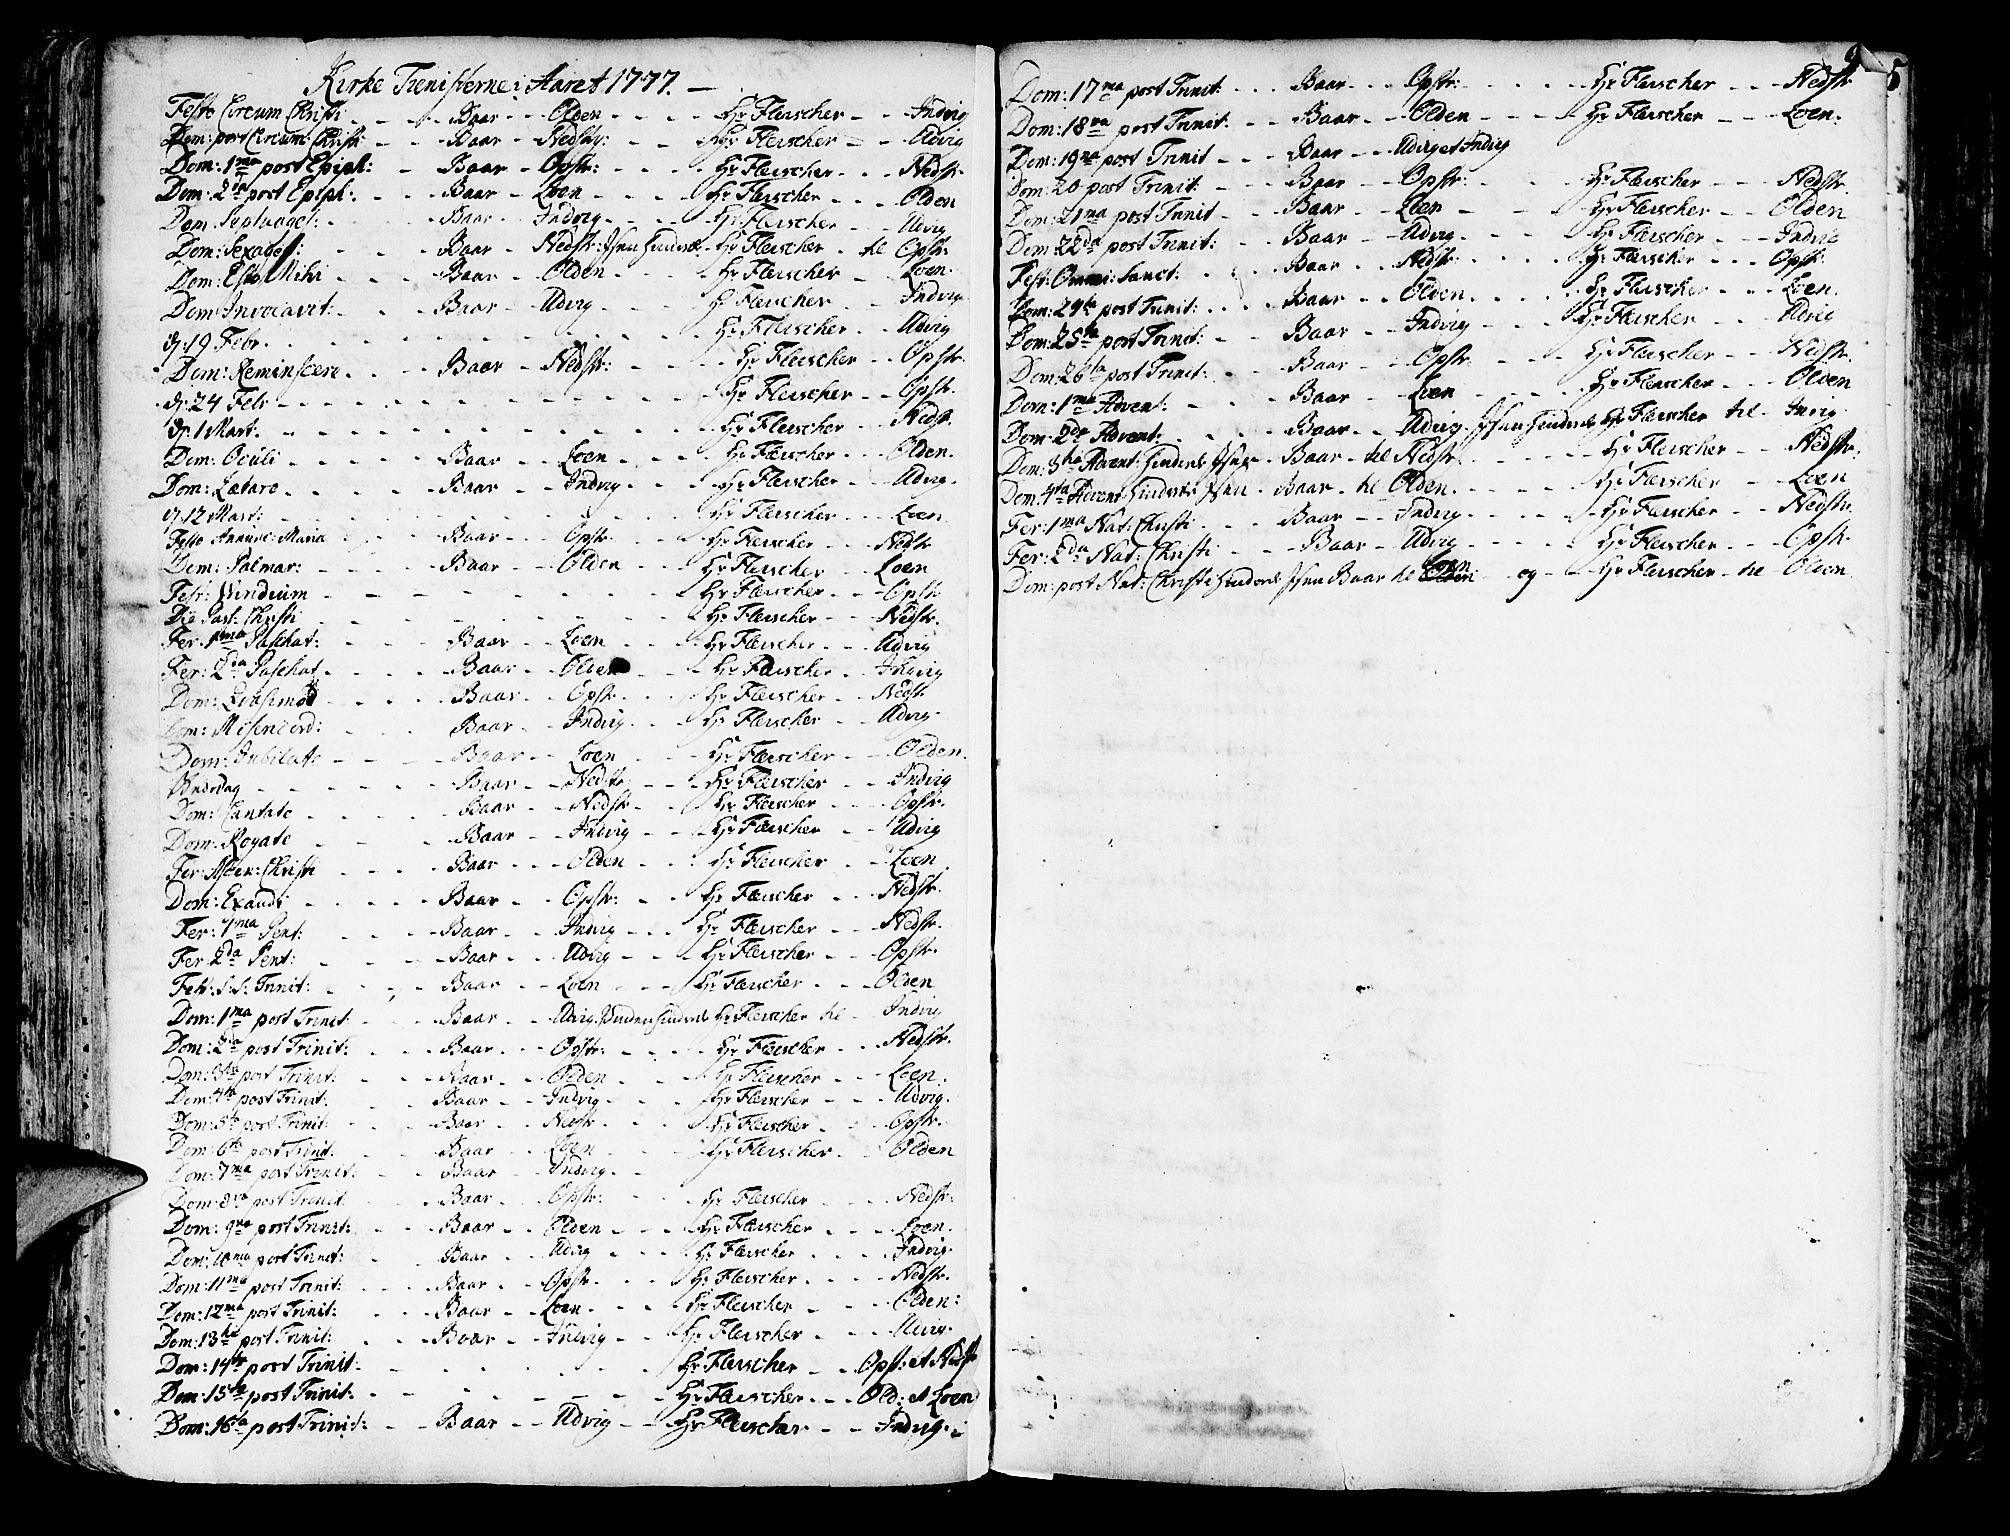 Kirke Tienisterne i Aaret 1777. —
Festo Circum Christi - - - - Baar - - Olden - - - - Hr Fleischer - - Indvig
Dom: post Circumc: Christi - - - Baar - - Nedstr: - - - Hr Fleischer - - Udvig
Dom: 1ma post Epiph: - Baar - - Opstr: - - - Hr Fleischer - - Nedstr.
Dom: 2da post Epiph: - - - Baar - - Loen - - - Hr Fleischer - - Olden
Dom. Septuages: - - - Baar - - Indvig - - - Hr Fleischer - - Udvig
Dom: Sexages: - - - Baar - - Nedstr: Isen hindrede Hr Fleischer - til Opstr.
Dom: Esto Mihi - - - Baar - - Olden - - - Hr Fleischer - - Loen.
Dom: Invocavit: - - - Baar - - Udvig - - - Hr Fleischer - - Indvig
d: 19 Febr. - - - Hr Fleischer - - Udvig
Dom: Reminscere - - - Baar - - Nedstr: - - - Hr Fleischer - - Opstr.
d: 24 Febr - - - Hr Fleischer - - Opstr.
d: 1 Mart. - - - Hr Fleischer - - Nedstr.
Dom: Oculi - - - Baar - - Loen - - - Hr Fleischer - - Olden.
Dom: Lætare - - - Baar - - Indvig - - - Hr Fleischer - - Udvig.
d: 12 Mart: - - - Hr Fleischer - - Loen
Festo Annunc: Maria - - - Baar - - Opstr: - - - Hr Fleischer - - Nedstr
Dom: Palmar: - - - Baar - - Olden - - - Hr Fleischer - - Loen
Festr: Viridium - - - Hr Fleischer - - Opstr
Die Pass: Christi - - - Hr Fleischer - - Nedstr.
Fer: 1ma Paschat: - - - Baar - - Loen - - - Hr Fleischer - - Udvig
Fer: 2da Paschat. - - - Baar - - Olden - - - Hr Fleischer - - Indvig
Dom: Qvasimod - - - Baar - - Opstr - - - Hr Fleischer - - Nedstr
Dom: Misericord: - - - Baar - - Indvig - - - Hr Fleischer - - Udvig.
Dom: Jubilate - - - Baar - - Loen - - - Hr Fleischer - - Olden.
Bededag - - - Baar - - Nedstr: - - - Hr Fleischer - - Indvig
Dom: Cantate - - - Baar - - Nedstr - - - Hr Fleischer - - Opstr.
Dom: Rogate - - - Baar - - Indvig - - - Hr Fleischer - - Udvig
Fer: Ascen: Christi - - - Baar - - Olden - - - Hr Fleischer - - Loen
Dom: Exaudi - - - Baar - - Opstr: - - - Hr Fleischer - - Nedstr.
Fer: 1ma Pent: - - - Baar - - Indvig - - - Hr Fleischer - - Nedstr.
Fer: 2da Pent: - - - Baar - - Udvig - - - Hr Fleischer - - Opstr.
Fest: S: S: Trinit: - - - Baar - - Loen - - - Hr Fleischer - - Olden
Dom: 1ma post Trinit - - - Baar - - Udvig. Vinden hindrede Hr Fleischer til - Indvig
Dom: 2da post Trinit: - - - Baar - - Opstr: - - - Hr Fleischer - - Nedstr.
Dom: 3tia post Trinit: - - - Baar - - Olden - - - Hr Fleischer - - Loen.
Dom: 4ta post Trinit. - - - Baar - - Indvig - - - Hr Fleischer - - Udvig.
Dom: 5ta post Trinit: - - - Baar - - Nedstr - - - Hr Fleischer - - Opstr.
Dom: 6ta post Trinit: - - - Baar - - Loen - - - Hr Fleischer - - Olden
Dom: 7ma post Trinit: - - - Baar - - Indvig - - -
Dom: 8va post Trinit. - - - Baar - - Opstr: - - - Hr Fleischer - - Nedstr:
Dom: 9na post Trinit: - - - Baar - - Olden - - - Hr Fleischer - - Loen.
Dom: 10ma post Trinit: - - - Baar - - Udvig - - - Hr Fleischer - - Indvig.
Dom: 11ma post Trinit: - - - Baar - - Opstr. - - - Hr Fleischer - - Nedstr.
Dom: 12ma post Trinit: - - - Baar - - Loen - - - Hr Fleischer - - Olden:
Dom: 13tia post Trinit: - - - Baar - - Indvig - - - Hr Fleischer - - Udvig.
Dom: 14ta post Trinit - - - Hr Fleischer - - Opst: et Nedst
Dom: 15ta post Trinit: - - - Hr Fleischer - - Old: et Loen
Dom: 16ta post Trinit: - - - Baar - - Udvig - - Hr Fleischer - - Indvig.
5
Dom: 17ma post Trinit - - - Baar - - Opstr: - - - Hr Fleischer - - Nedstr
Dom: 18va post Trinit: - - Baar - - Olden - - - Hr Fleischer - - Loen.
Dom: 19na post Trinit - - - Baar - - Udvig et Indvig
Dom: 20 post Trinit: - - - Baar - - Opstr: - - - Hr Fleischer - - Nedstr.
Dom: 21ma post Trinit - - Baar - - Loen - - - Hr Fleischer - - Olden
Dom: 22da post Trinit: - - Baar - - Udvig - - - Hr Fleischer - - Indvig
Fest: Omni: Sanct: - - - Baar - - Nedstr - - - Hr Fleischer - - Opstr:
Dom: 24ta post Trinit: - - - Baar - - Olden - - - Hr Fleischer - - Loen.
Dom: 25ta post Trinit: - - Baar - - Indvig - - - Hr Fleischer - - Udvig
Dom: 26ta post Trinit: - - - Baar - - Opstr - - - Hr Fleischer - - Nedstr.
Dom: 1ma Advent: - - - Baar - - Loen - - - Hr Fleischer - - Olden
Dom: 2da Advent: - - - Baar - - Udvig. Isen hindrede Hr Fleischer til - Invig
Dom: 3tia Advent: hindrede Isen - Baar - til Nedstr. - - - Hr Fleischer - - Nedstr.
Dom: 4ta Advent hindrede Isen - Baar - til Olden. - - - Hr Fleischer - - Loen
Fer: 1ma Nat: Christi - - - Baar - - Indvig - - - Hr Fleischer - - Nedstr.
Fer: 2da Nat: Christi - - - Baar - - Udvig - - - Hr Fleischer - - Opstr.
Dom: post Nat: Christi hindrede Isen Baar til Loen - og - Hr Fleischer - til - Olden